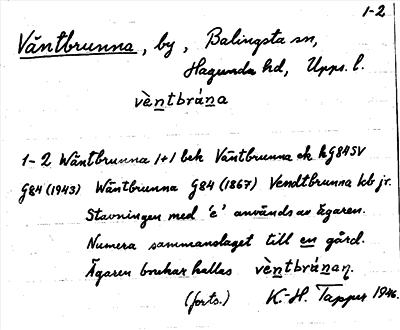 1-2
Väntbrunna, by, Balingsta sn,
Hagunda hd, Upps. l.
vèntbrúna
1-2 Wäntbrunna 1+1 bek Väntbrunna ek kG84SV
G84 (1943) Wäntbrunna G84 (1867) Vendtbrunna kb jr.
Stavningen med 'e' används av ägaren.
Numera sammanslaget till en gård.
Ägaren brukar kallas vèntbrúnaŋ.
(forts.) K-H. Tapper 1946.